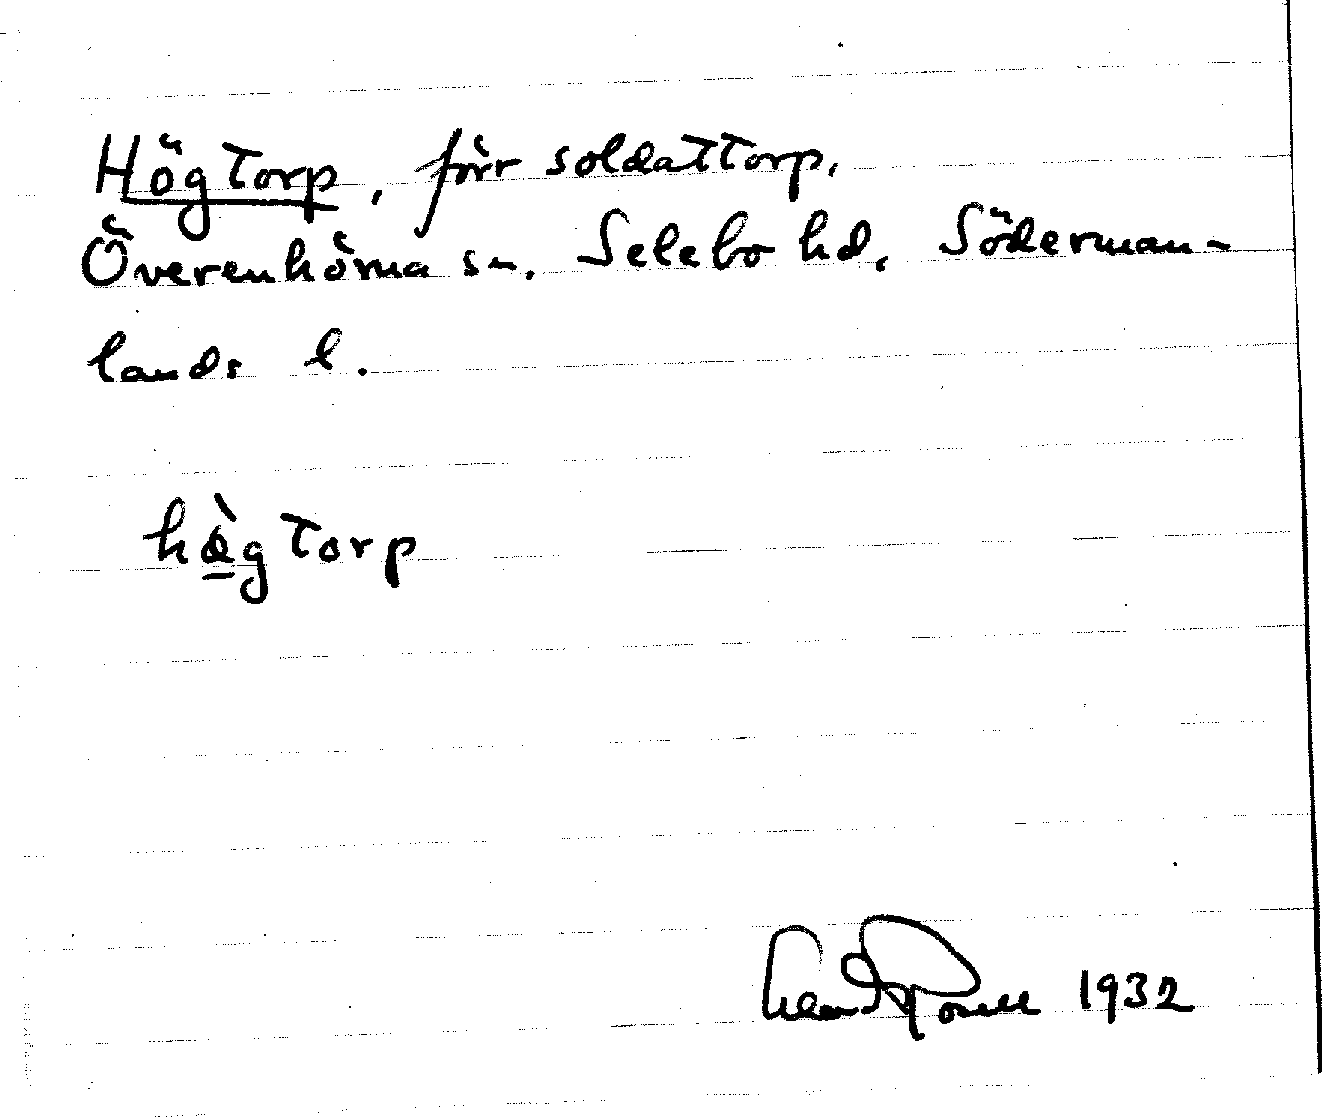 Högtorp, förr soldattorp,
Överenhörna sn, Selebo hd, Söderman-
lands l.
hö̀gtorp
1932